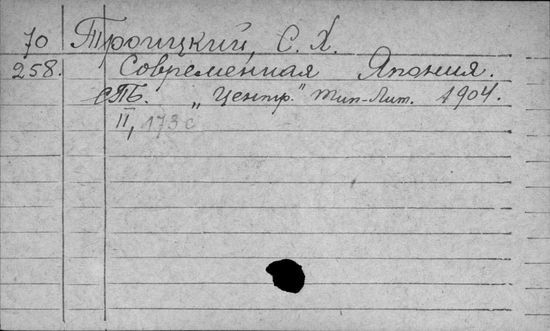 70 Троицкий, С. Х.
258. Современная Япония.
СПБ. „Центр." Тип-Лит. 1904.
II, 173 с